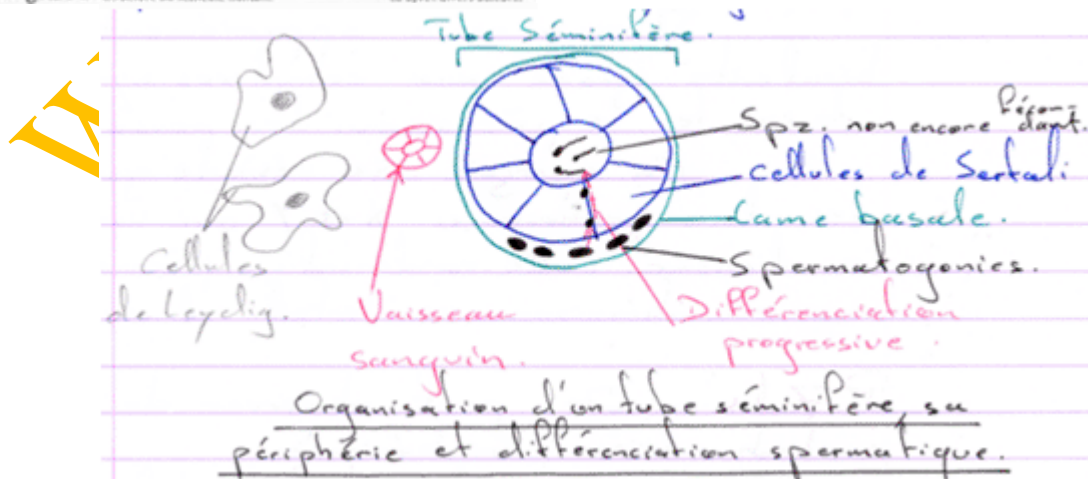 Tube Séminifère.
Spz. non encore fécondant.
Cellules de Sertoli
Lame basale.
Spermatogonies.
Cellules
de Leydig.
Vaisseau
sanguin.
Différenciation
progressive.
Organisation d'un tube séminifère, sa
périphérie et différenciation spermatique.